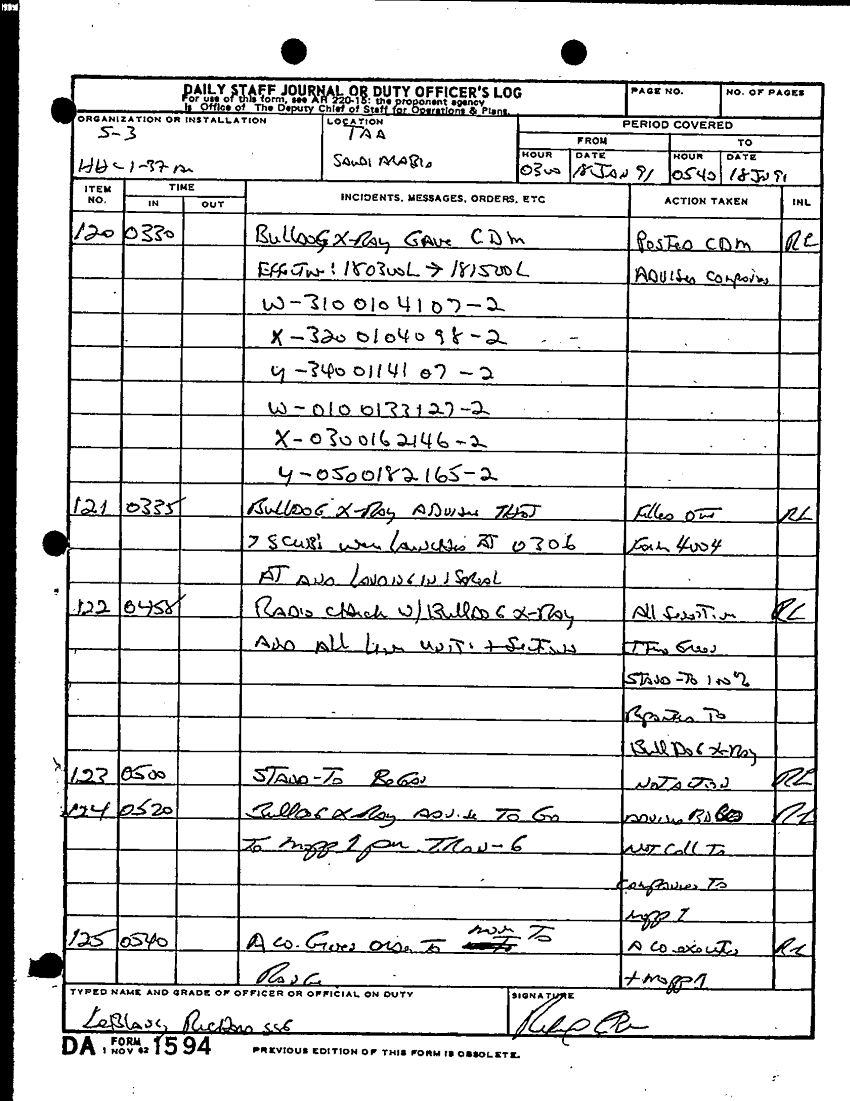 DAILY STAFF JOURNAL OR DUTY OFFICER'S LOG
For use of this form, see AR 220-15: the proponent agency
is Office of The Deputy Chief of Staff for Operations & Plans.
PAGE NO.
NO. OF PAGES
ORGANIZATION OR INSTALLATION
S-3
HHC 1-37 AR
LOCATION
TAA
SAUDI ARABIA
PERIOD COVERED
FROM
TO
HOUR
0300
DATE
18 JAN 91
HOUR
0540
DATE
18 JA 91
ITEM NO.
TIME
IN
OUT
INCIDENTS, MESSAGES, ORDERS, ETC
ACTION TAKEN
INL
120 0330 Bulldog X-Ray Gave CDM Posted CDM RL
Effective: 180300L → 181500L Advised companies
W-310 0104107-2
X-320 0104098-2
Y-340 0114107-2
W-010 0133127-2
X-030 0162146-2
Y-050 0182165-2
121 0335 Bulldog X-Ray Advise That Filled out RL
7 SCUDs were launched AT 0306 Form 4004
AT and landing in Isreal
122 0458 Radio check w/ Bulldog X-Ray All Section RL
And all line units + Sections
Stand-To 100%
Reported To
Bulldog X-Ray
123 0500 Stand-To Began No Action RL
124 0520 Bulldog X-Ray advise To Go RL
To mopp 1 per
NET Call To
companies To
mopp 1
125 0540 A co. Gives order To move To A co. executes RL
Range + mopp 1
TYPED NAME AND GRADE OF OFFICER OR OFFICIAL ON DUTY
LeBlanc, Richard SSG
SIGNATURE
DA FORM 1 NOV 62 1594
PREVIOUS EDITION OF THIS FORM IS OBSOLETE.